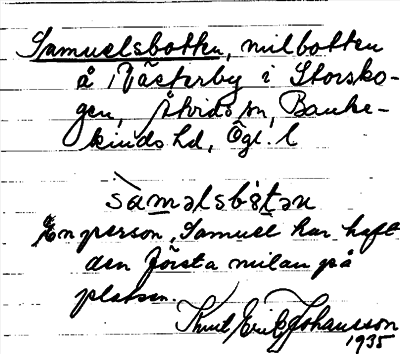 Samuelsbotten, milbotten
å Västerby i Storsko-
gen, Åtvids sn, Banke-
kinds hd, Ögl. l
sàməlsbòtən
En person, Samuel har haft
den första milan på
platsen.
Knut Erik Johansson
1935